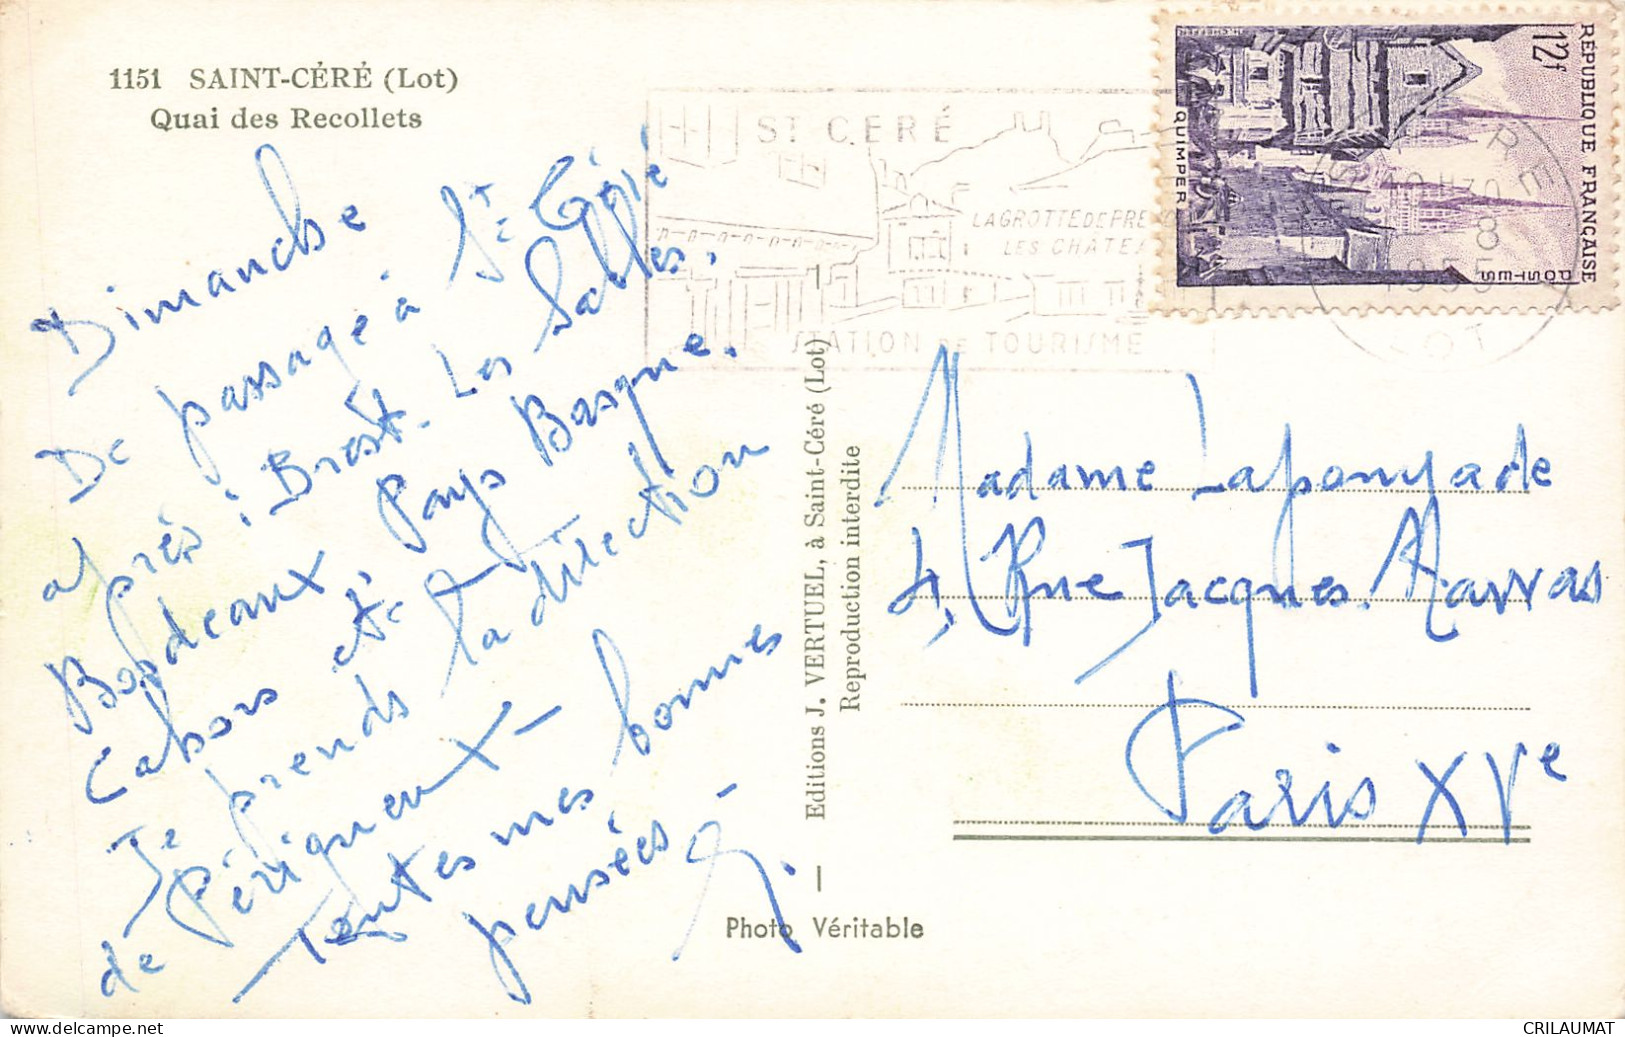 1151 SAINT-CÉRÉ (Lot)
Quai des Recollets
Dimanche
De passage à St Céré
après : Brest. Les Sables.
Bordeaux, Pays Basque.
Cahors etc
Je prends la direction
de Périgueux -
Toutes mes bonnes
pensées -
Editions J. VERTUEL, à Saint-Céré (Lot)
Reproduction interdite
Photo Véritable
ST CERÉ
LA GROTTE DE PRE
LES CHATEA
STATION DE TOURISME
RÉPUBLIQUE FRANÇAISE
12f
POSTES
QUIMPER
8
1955
LOT
Madame Laponyade
4, Rue Jacques. Mawas
Paris XVe
www.delcampe.net
CRILAUMAT